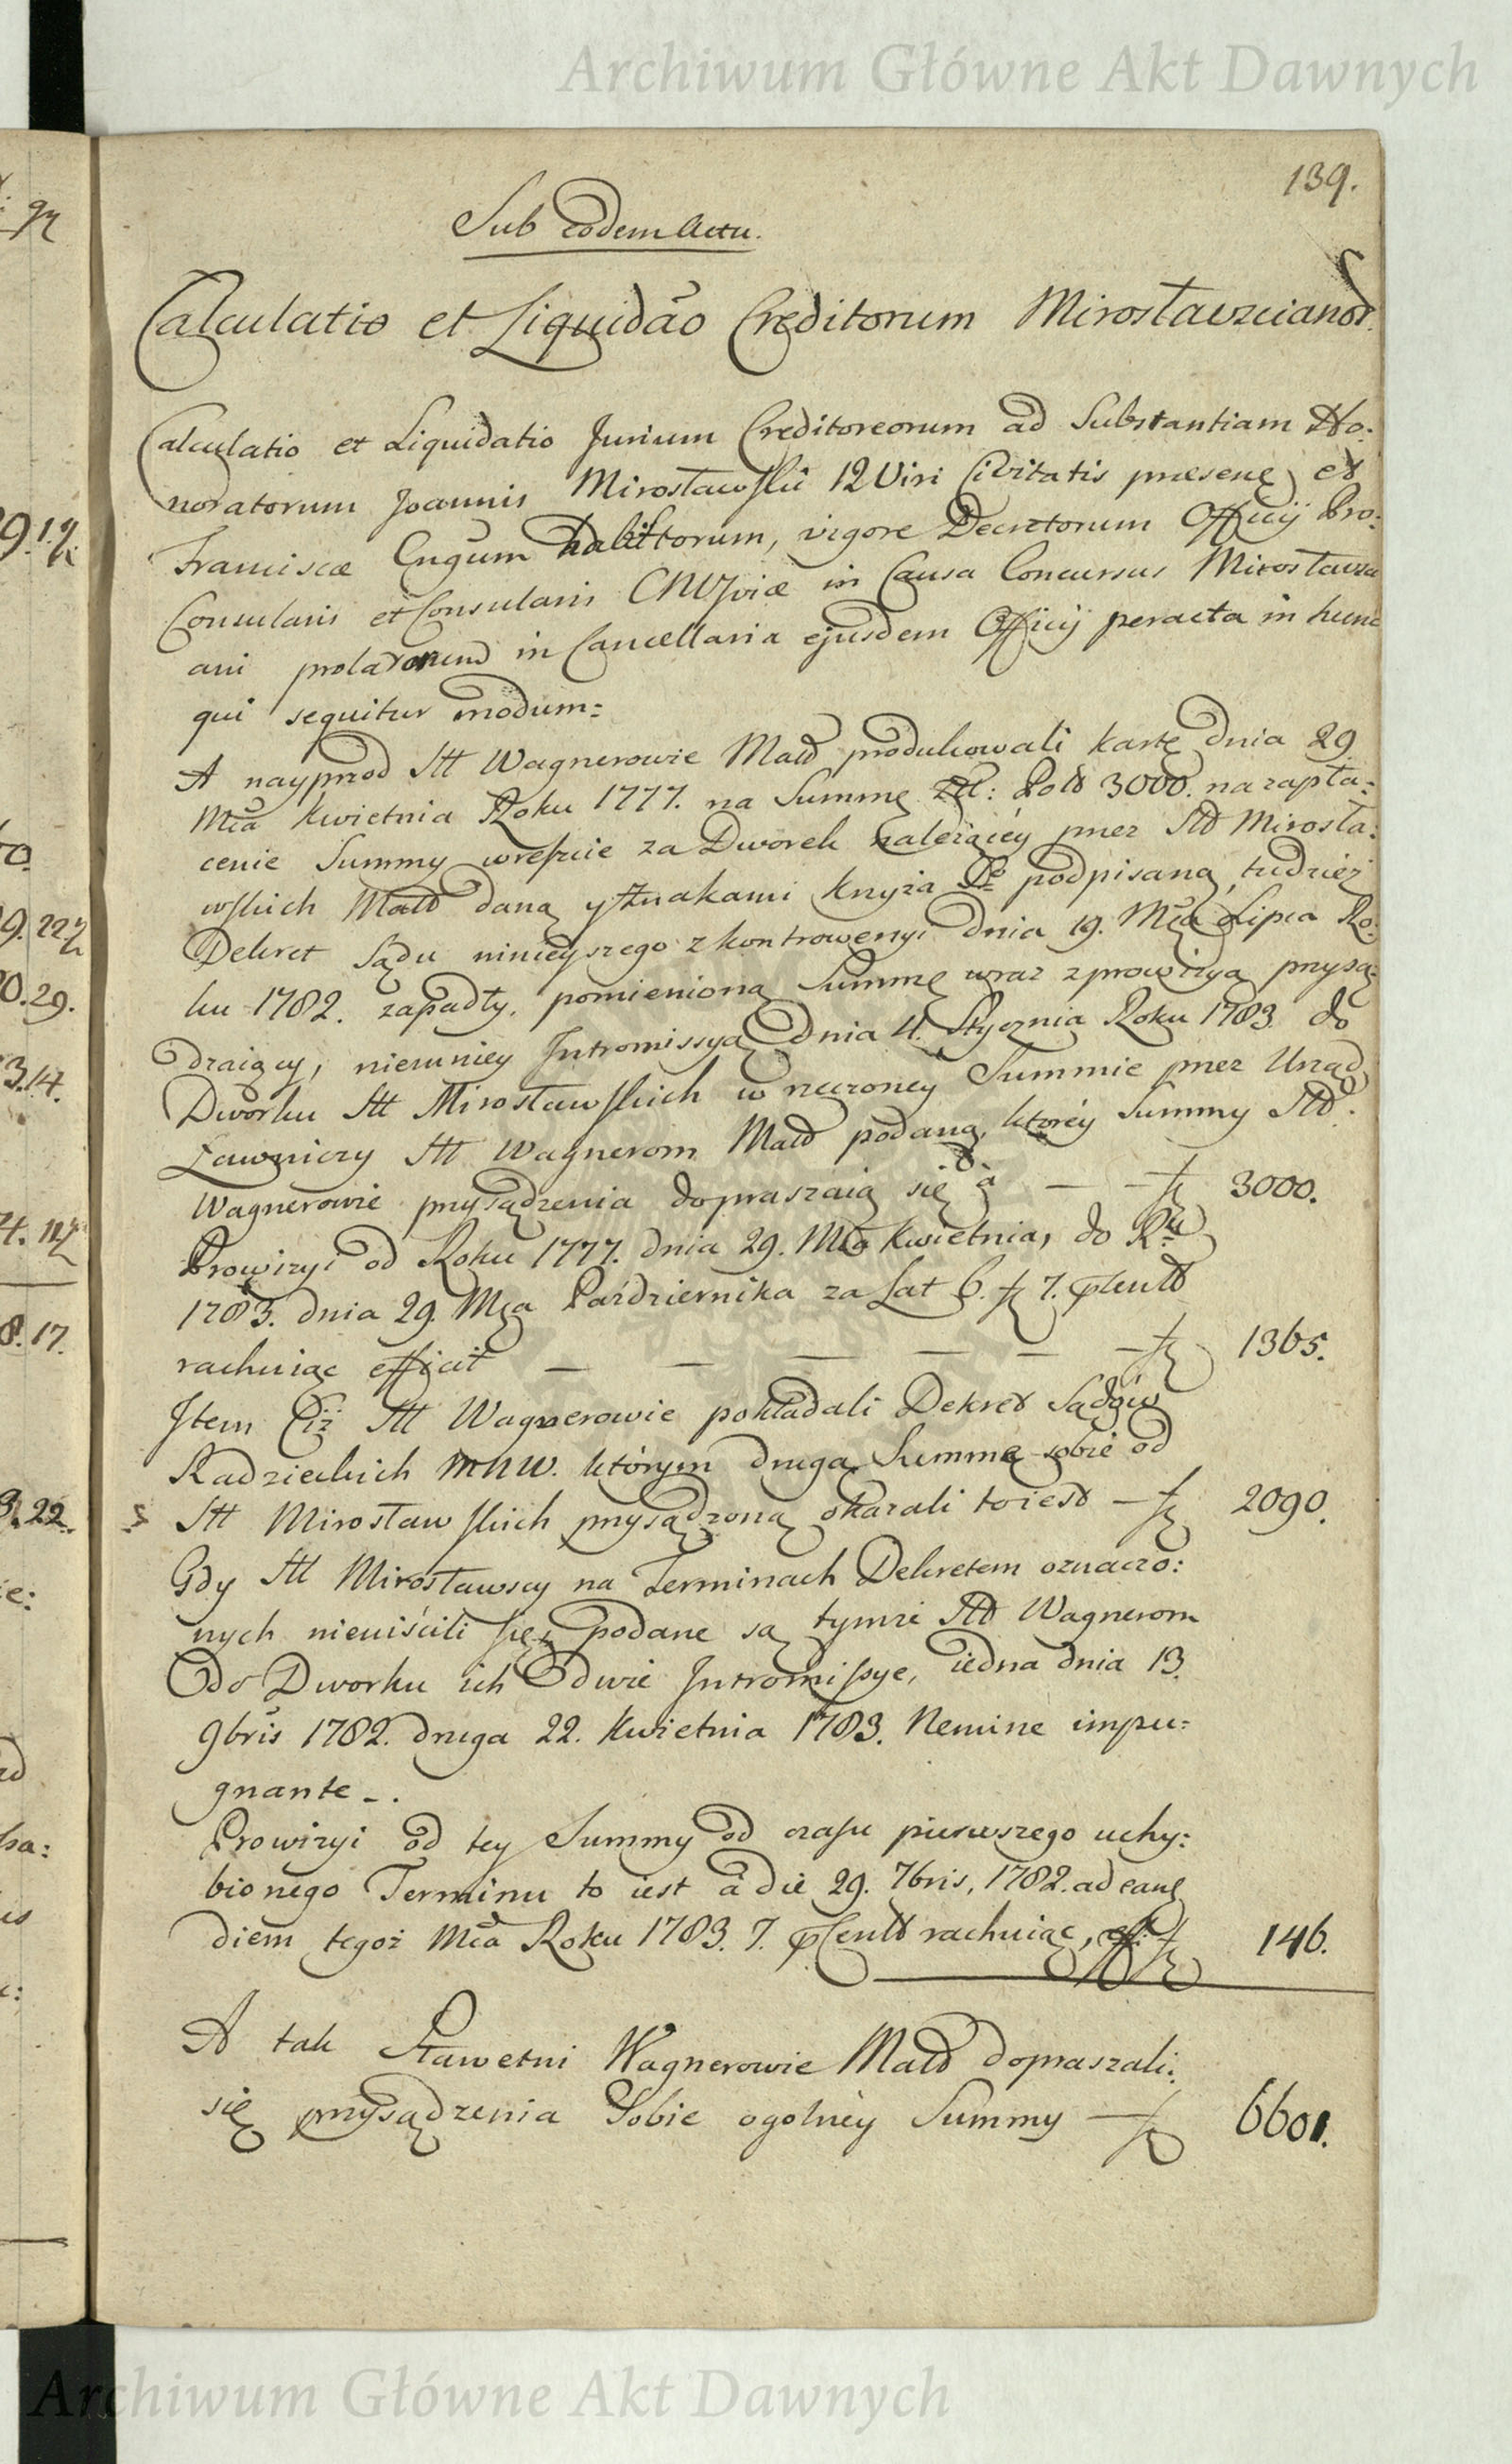 Archiwum Główne Akt Dawnych
139.
Sub eodem Actu.
Calculatio et Liquidão Creditorum Mirosławscianor.
Calculatio et Liquidatio Jurium Creditoreorum ad Substantiam Ho:
noratorum Joannis Mirosławski 12Viri Civitatis præsenę et
Franciscæ Cngum habittorum, vigore Decretorum Officij Pro:
Consularis et Consularis CNWviæ in Causa Concursus Mirosławsci
ani prolatorum in Cancellaria ejusdem Officij peracta in hunc
qui sequitur modum=
A nayprzod Stt Wagnerowie Małd produkowali kartę dnia 29
Mca Kwietnia Roku 1777. na Summę Złł: Pold 3000. na zapła:
cenie Summy wreszcie za Dworek należącéy przez Std Mirosła:
wskich Małd daną y Znakami krzyża So podpisaną, tudzież
Dekret Sądu ninieyszego z kontrowersyi dnia 19. Mca Lipca Ro:
ku 1782. zapadły, pomienioną Summę wraz z prowizyą przysą:
dzaiący, niemniey Intromissyą dnia 4. Stycznia Roku 1783 do
Dworku Stt Mirosławskich w rzeczoney Summie przez Urząd
Ławniczy Stt Wagnerom Małd podaną, któréy Summy Std.
Wagnerowie przysądzenia dopraszaią się à — — f 3000.
Prowizyi od Roku 1777. dnia 29. Mca Kwietnia, do Rku
1783. dnia 29. Mca Października za Lat 6. f 7. pCentd
rachuiąc efficit — — — — — — f 1365.
Item Ciż Stt Wagnerowie pokładali Dekret Sądów
Radzieckich MNW. którym drugą Summę sobie od
Stt Mirosławskich przysądzoną okazali toiest — f 2090.
Gdy Stt Mirosławscy na Terminach Dekretem oznaczo:
nych nieuiścili się, podane są tymże Std Wagnerom
do Dworku ich dwie Intromissye, iedna dnia 13.
9bris 1782. druga 22. Kwietnia 1783. Nemine impu=
gnante -.
Prowizyi od tey Summy od czasu pierwszego uchy:
bionego Terminu to iest à die 29. 7bris, 1782. ad eanę
diem tegoż Mca Roku 1783. 7. pCentd rachuiąc, eff: f 146.
A tak Sławetni Wagnerowie Małd dopraszali:
się przysądzenia Sobie ogolnéy Summy — f 6601.
Archiwum Główne Akt Dawnych